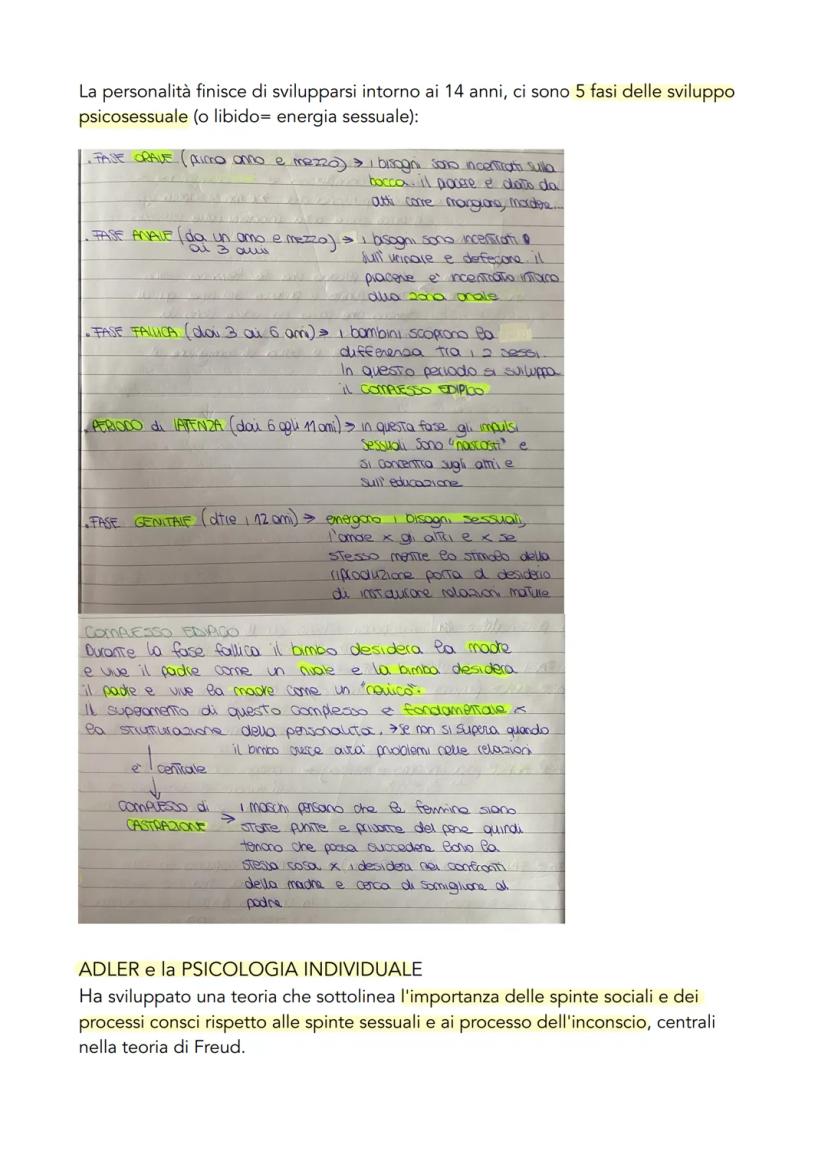 La personalità finisce di svilupparsi intorno ai 14 anni, ci sono 5 fasi delle sviluppo
psicosessuale (o libido= energia sessuale):
. FASE ORALE (primo anno e mezzo) → i bisogni sono incentrati sulla
bocca. il piacere è dato da
atti come mangiare, mordere...
. FASE ANALE (da un anno e mezzo) → i bisogni sono incentrati
ai 3 anni
sull'urinare e defecare. il
piacere è incentrato intorno
alla zona anale
. FASE FALLICA (dai 3 ai 6 anni) → i bambini scoprono la
differenza tra i 2 sessi.
In questo periodo si sviluppa
il COMPLESSO EDIPICO
. PERIODO di LATENZA (dai 6 agli 11 anni) → in questa fase gli impulsi
sessuali sono "nascosti" e
si concentra sugli altri e
sull'educazione
. FASE GENITALE (oltre i 12 anni) → emergono i bisogni sessuali,
l'amore x gli altri e x se
stesso mentre lo stimolo della
riproduzione porta al desiderio
di instaurare relazioni mature
COMPLESSO EDIPICO
Durante la fase fallica il bimbo desidera la madre
e vive il padre come un rivale e la bimba desidera
il padre e vive la madre come un "nemico".
Il superamento di questo complesso è fondamentale x
la strutturazione della personalità. → se non si supera quando
il bimbo cresce avrà problemi nelle relazioni
è centrale
COMPLESSO di → i maschi pensano che le femmine siano
CASTRAZIONE state punite e private del pene quindi
temono che possa succedere loro la
stessa cosa x i desideri nei confronti
della madre e cerca di somigliare al
padre
ADLER e la PSICOLOGIA INDIVIDUALE
Ha sviluppato una teoria che sottolinea l'importanza delle spinte sociali e dei
processi consci rispetto alle spinte sessuali e ai processo dell'inconscio, centrali
nella teoria di Freud.